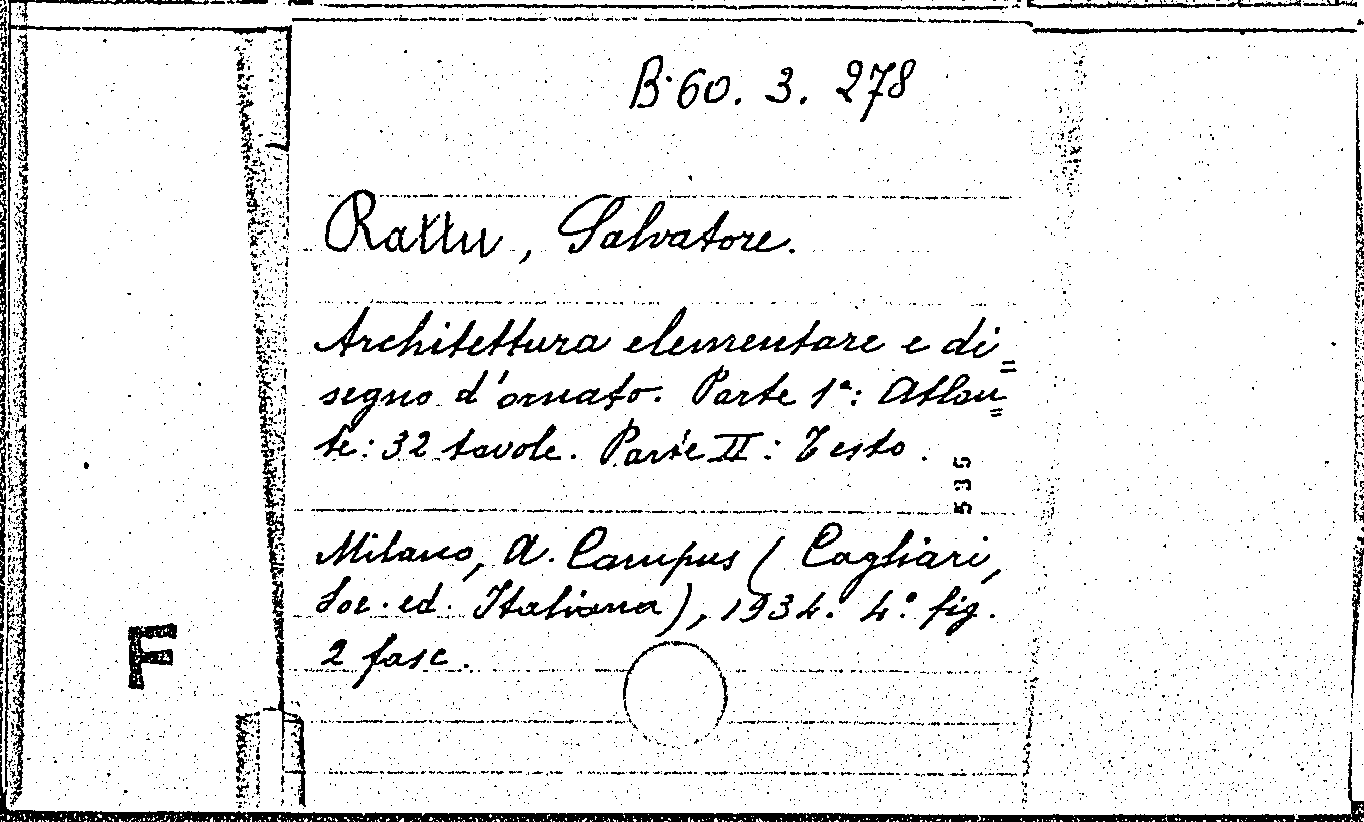 B. 60. 3. 278
Rattu, Salvatore.
Architettura elementare e di=
segno d'ornato. Parte 1ª: Atlan=
te: 32 tavole. Parte II: Testo.
535
Milano, A. Campus (Cagliari,
Soc. ed. Italiana), 1934. 4.° fig.
2 fasc.
F